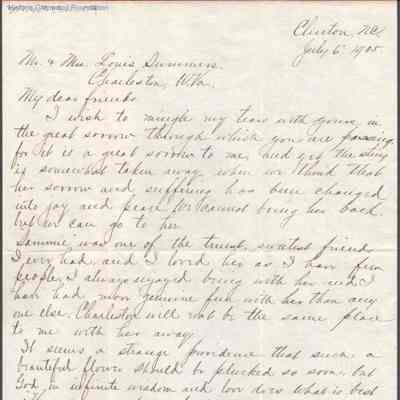 Clinton, N.C.
July 6, 1905.
Mr. & Mrs. Louis Summers.
Charleston, W.Va.
My dear friends
I wish to mingle my tears with yours in
the great sorrow through which you are passing,
for it is a great sorrow to me, and yet the sting
is somewhat taken away when we think that
her sorrow and suffering has been changed
into joy and peace. We cannot bring her back
but we can go to her.
was one of the truest, sweetest friends
I ever had, and I loved her as I have few
people. I always enjoyed being with her and I
have had more genuine fun with her than any
one else. Charleston will not be the same place
to me with her away.
It seems a strange providence that such a
beautiful flower should be plucked so soon, but
God in infinite wisdom and love does what is best